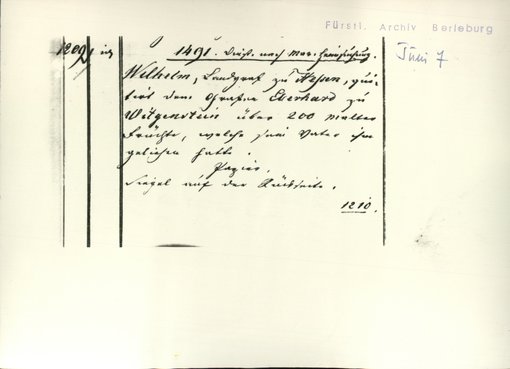 Fürstl. Archiv Berleburg
Juni 7
1209
1491. Dienst. nach Mar. Heimsuchung.
Wilhelm, Landgraf zu Hessen, quit-
tirt dem Grafen Eberhard zu
Witgenstein über 200 malter
Früchte, welche sein Vater ihm
geliehen hatte.
Papier,
Siegel auf der Rückseite.
1210.